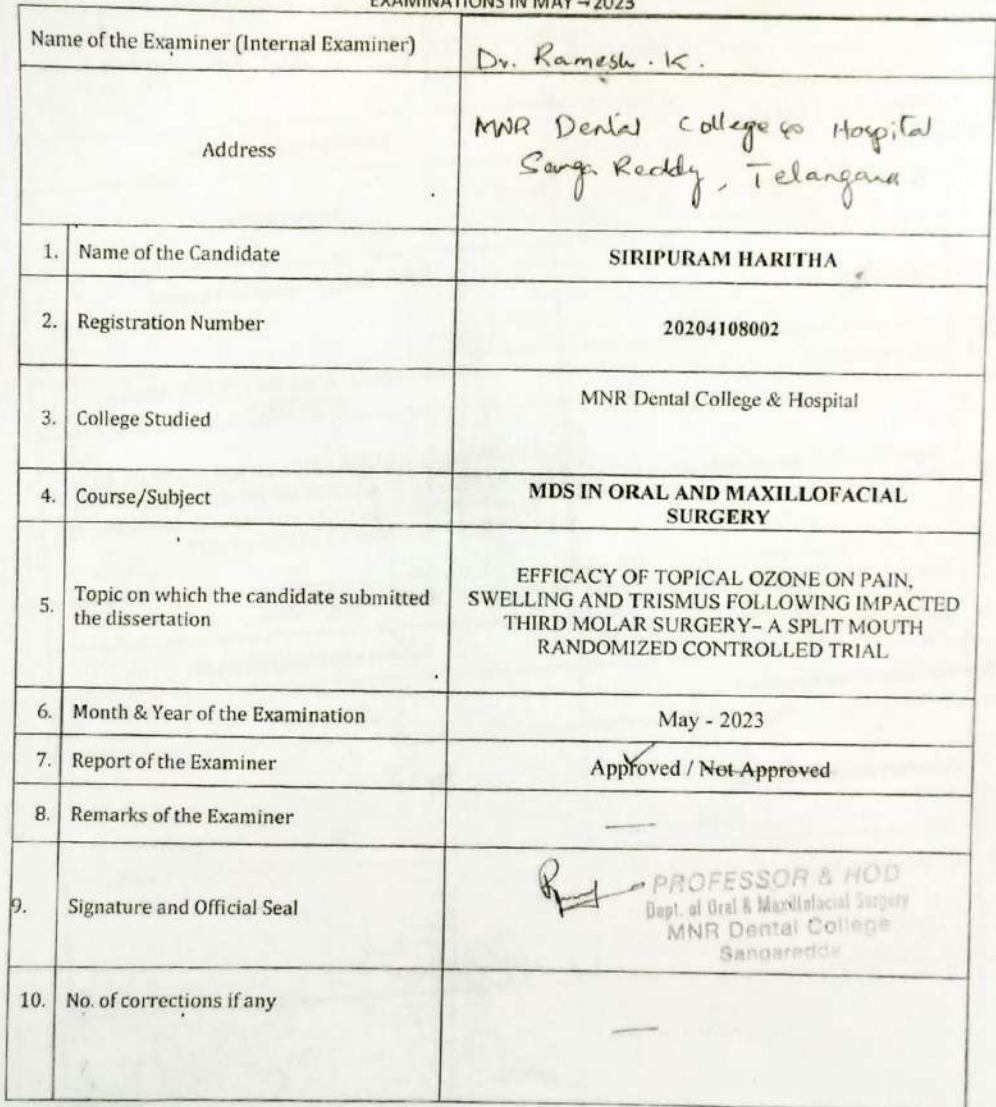 EXAMINATIONS IN MAY – 2023
Name of the Examiner (Internal Examiner)
Dr. Ramesh . K .
Address
MNR Dental College & Hospital
Sanga Reddy, Telangana
1. Name of the Candidate
SIRIPURAM HARITHA
2. Registration Number
20204108002
3. College Studied
MNR Dental College & Hospital
4. Course/Subject
MDS IN ORAL AND MAXILLOFACIAL
SURGERY
5. Topic on which the candidate submitted
the dissertation
EFFICACY OF TOPICAL OZONE ON PAIN,
SWELLING AND TRISMUS FOLLOWING IMPACTED
THIRD MOLAR SURGERY– A SPLIT MOUTH
RANDOMIZED CONTROLLED TRIAL
6. Month & Year of the Examination
May - 2023
7. Report of the Examiner
Approved / Not Approved
8. Remarks of the Examiner
9. Signature and Official Seal
PROFESSOR & HOD
Dept. of Oral & Maxillofacial Surgery
MNR Dental College
Sangareddy
10. No. of corrections if any